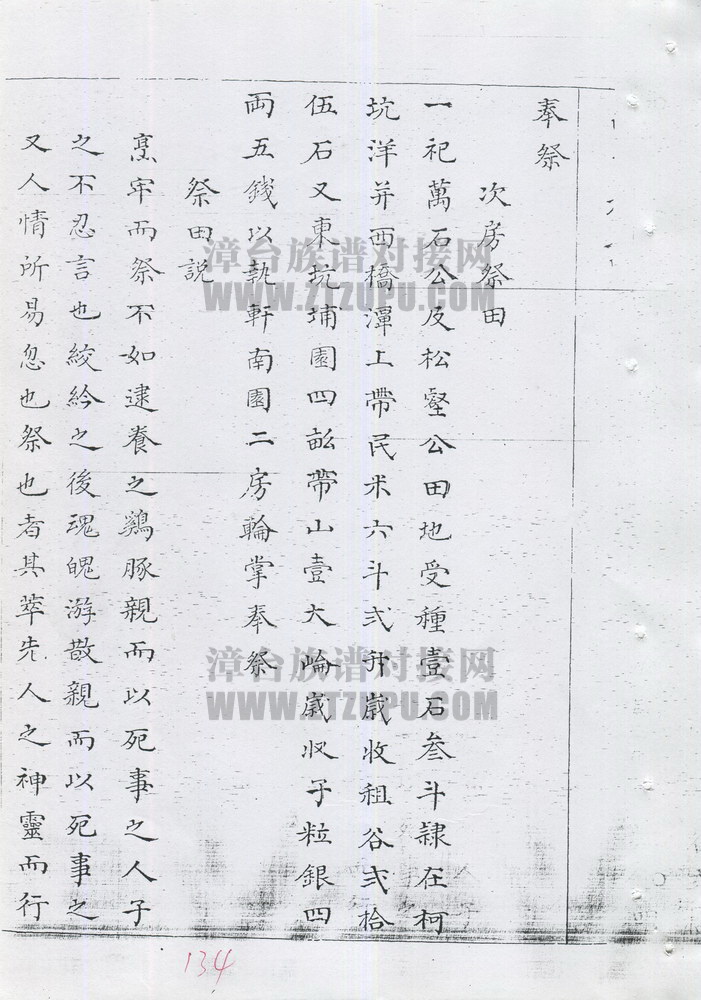 奉祭
次房祭田
一祀萬石公及松壑公田地受種壹石叁斗隷在柯
坑洋并西橋潭上帶民米六斗弍升歲收租谷弍拾
伍石又東坑埔園四畝帶山壹大崙歲収子粒銀四
両五錢以執軒南園二房輪掌奉祭
祭田説
烹牢而祭不如逮養之鷄豚親而以死事之人子
之不忍言也絞紟之後魂魄游散親而以死事之
又人情所易忽也祭也者其萃先人之神靈而行
漳台族谱对接网
WWW.ZTZUPU.COM
漳台族谱对接网
WWW.ZTZUPU.COM
134